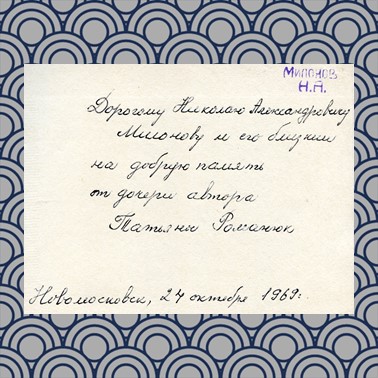 Милонов
Н.А.
Дорогому Николаю Александровичу
Милонову и его близким
на добрую память
от дочери автора
Татьяны Романюк
Новомосковск, 24 октября 1969г.